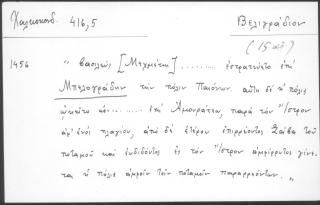 Χαλκοκονδ. 416,5 Βελιγράδιον
(15 αἰ.)
1456 " βασιλεὺς [Μεχμέτης] .......... ἐστρατεύετο ἐπὶ
Μπελογράδην τὴν πόλιν Παιόνων. αὕτη δὲ ἡ πόλις
ᾠκεῖτο ........ ἐπὶ Ἀμουράτεω, παρὰ τὸν Ἴστρον
ἀφ' ἑνὸς πλαγίου, ἀπὸ δὲ ἑτέρου ἐπιρρέοντος Σάβα τοῦ
ποταμοῦ καὶ ἐκδιδόντος ἐς τὸν Ἴστρον ἀμφίρρυτος γίνε-
ται ἡ πόλις ἀμφοῖν τοῖν ποταμοῖν παραρρεόντων. "